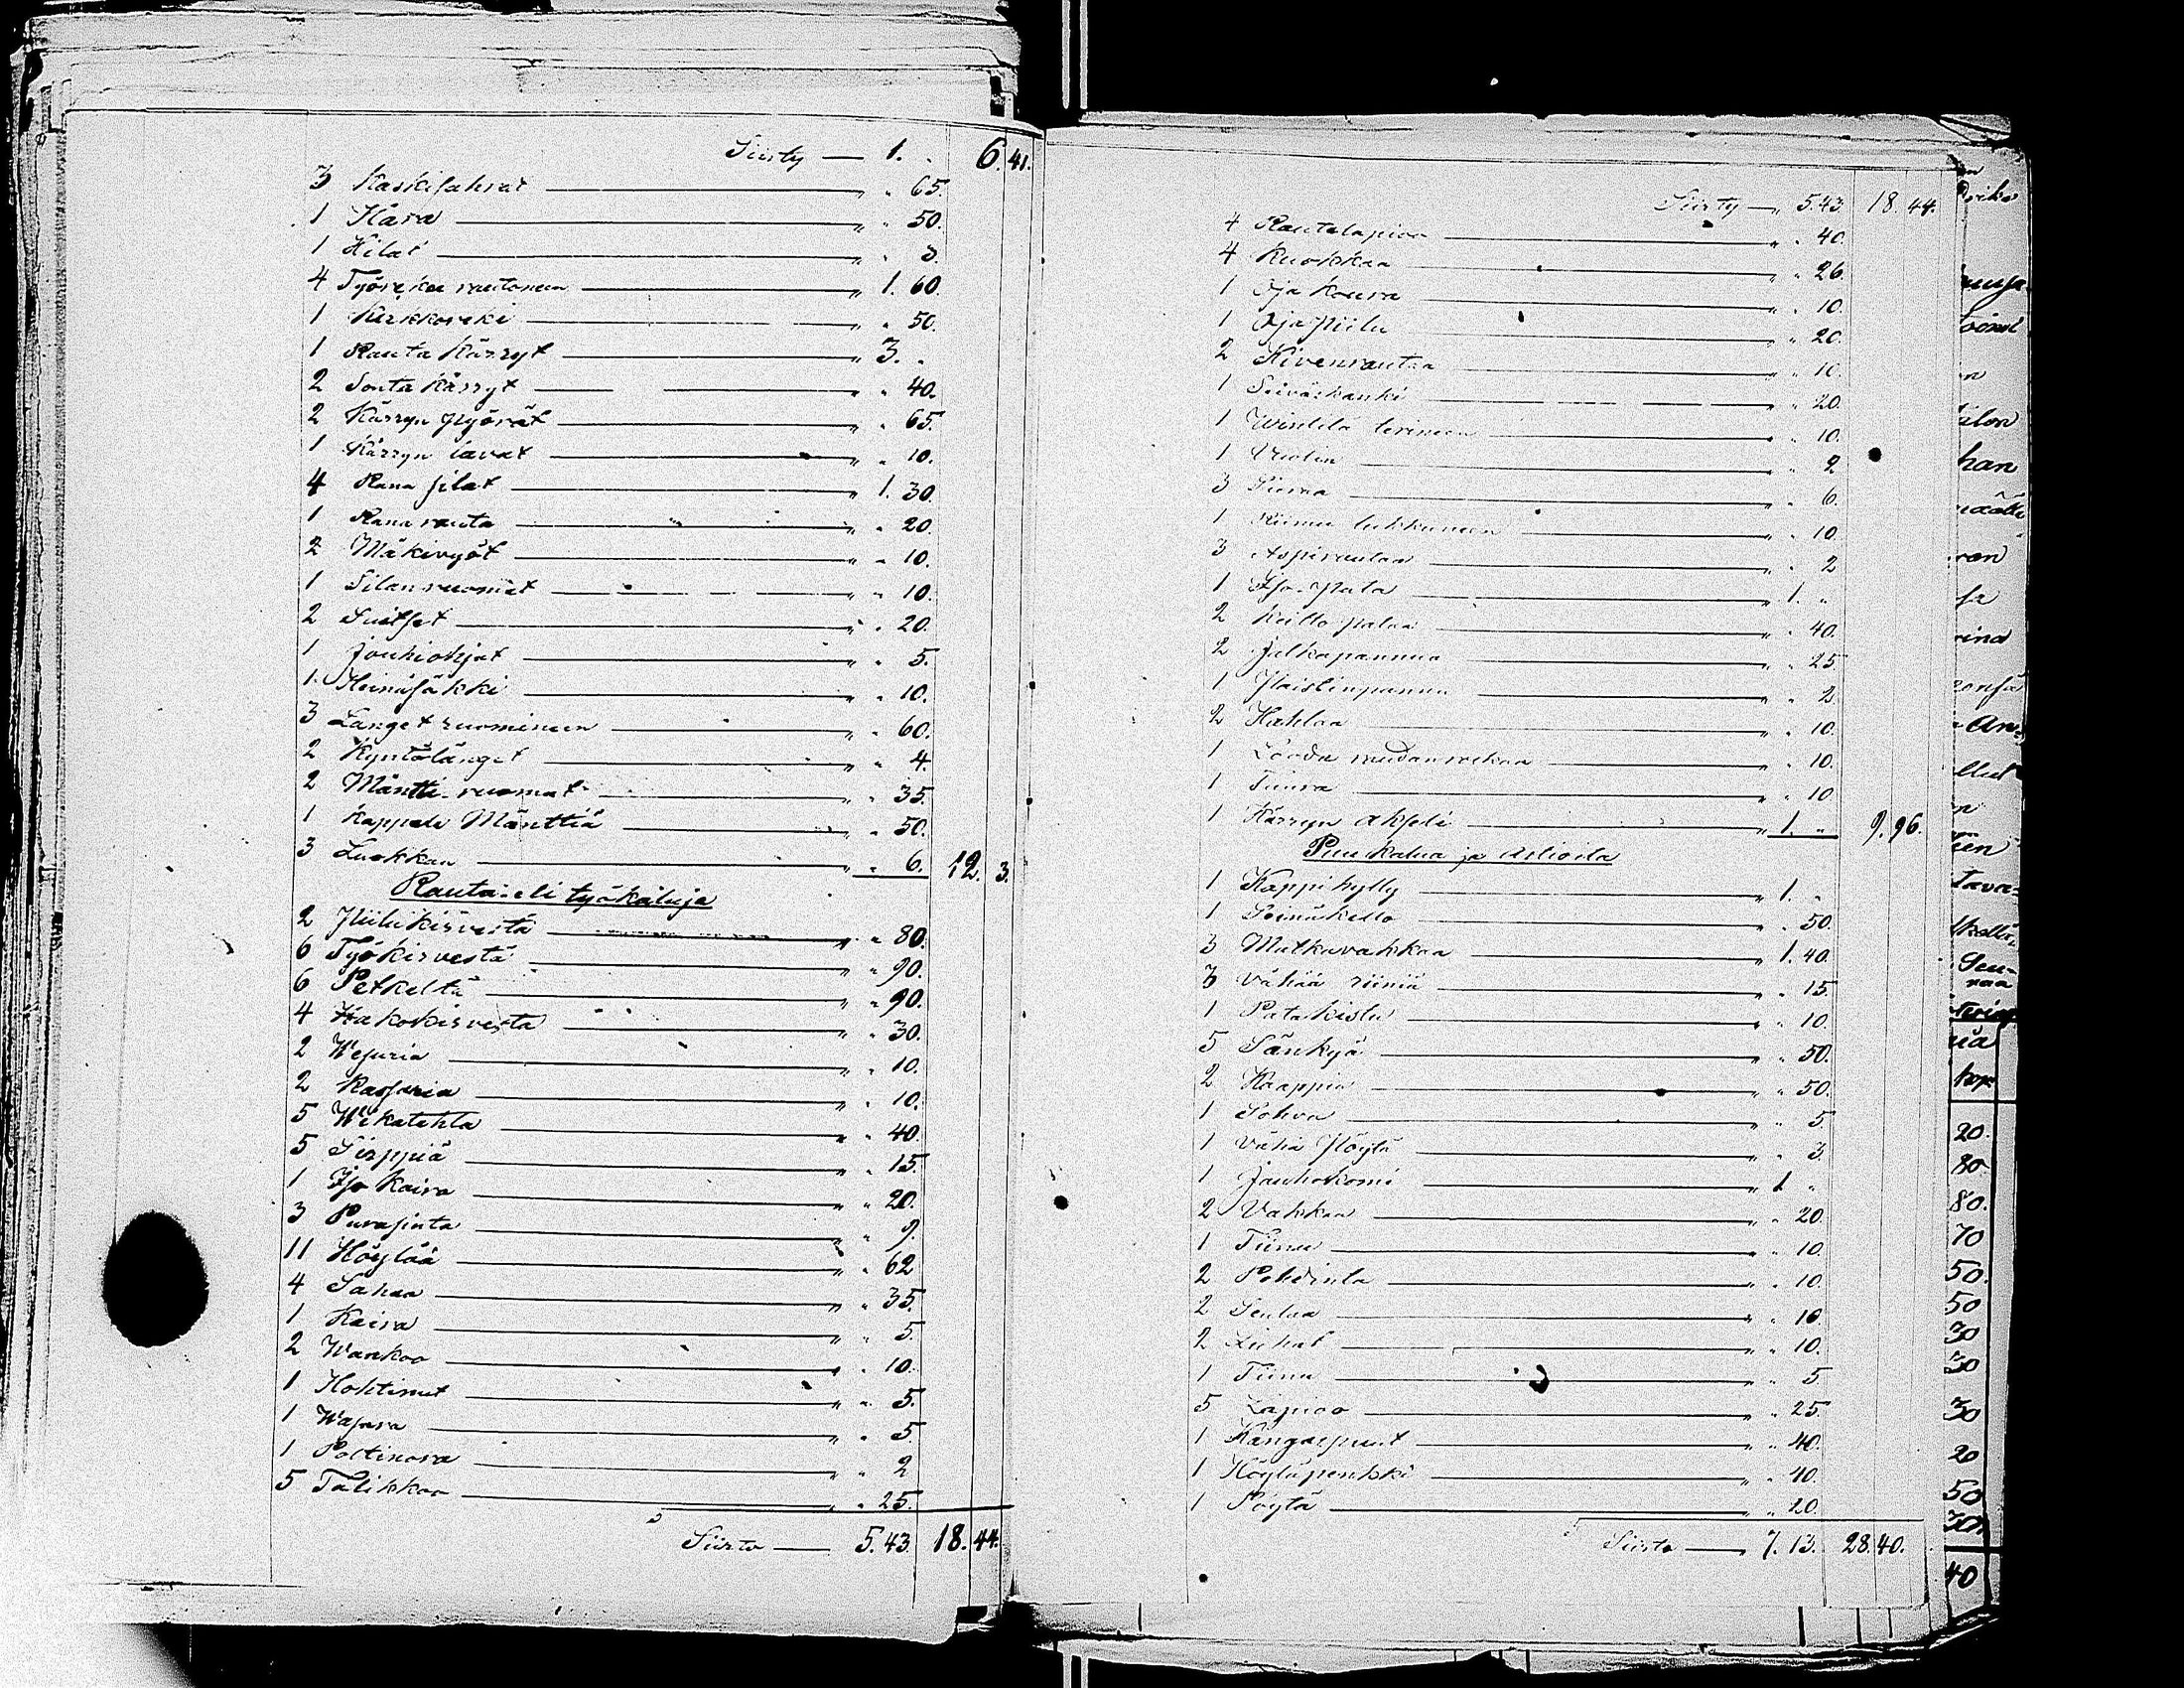 Siirty — 1. „ 6. 41.
3 Kaskisahrat — „ „ 65.
1 Hara — „ „ 50.
1 Hilat — „ „ 3.
4 Työrekee rautoneen — „ 1. 60.
1 Kirkkoreki — „ „ 50.
1 Rauta Kärryt — „ 3. „
2 Sonta Kärryt — „ „ 40.
2 Kärryn pyörät — „ „ 65.
1 Kärryn lavat — „ „ 10.
4 Rana silat — „ 1. 30.
1 Rana rauta — „ „ 20.
2 Mäkivyöt — „ „ 10.
1 Silanruomat — „ „ 10.
2 Suitset — „ „ 20.
1 Jouhiohjat — „ „ 5.
1 Heinäsäkki — „ „ 10.
3 Länget ruomineen — „ „ 60.
2 Kyntölänget — „ „ 4.
2 Mäntti-ruomat — „ „ 35.
1 Kappale Mänttiä — „ „ 50.
3 Luokkaa — „ „ 6. 12. 3.
Rauta- eli työkaluja
2 Piilukirvestä — „ „ 80.
6 Työkirvestä — „ „ 90.
6 Petkeltä — „ „ 90.
4 Hakokirvestä — „ „ 30.
2 Wesuria — „ „ 10.
2 Kassaria — „ „ 10.
5 Wikatehta — „ „ 40.
5 Sirppiä — „ „ 15.
1 Iso Kaira — „ „ 20.
3 Purasinta — „ „ 9.
11 Höylää — „ „ 62
4 Sahaa — „ „ 35.
1 Kaira — „ „ 5.
2 Wankoo — „ „ 10.
1 Hohtimet — „ „ 5.
1 Wasara — „ „ 5.
1 Poltinora — „ „ 2
5 Talikkoo — „ „ 25.
Siirto — 5. 43. 18. 44.
Siirty — „ 5.43. 18. 44.
4 Rautalapioo — „ „ 40.
4 Kuokkaa — „ „ 26.
1 Oja Koura — „ „ 10.
1 Oja piilu — „ „ 20.
2 Kivenrautaa — „ „ 10.
1 Seiväskanki — „ „ 20.
1 Wintilä terineen — „ „ 10.
1 — „ „ 2
3 — „ „ 6.
1 Riimu lukkuneen — „ „ 10.
3 Aspirautaa — „ „ 2
1 Iso-pata — „ 1. „
2 Keitto pataa — „ „ 40.
2 Jalkapannua — „ „ 25
1 Paistinpannu — „ „ 2.
2 Hahlaa — „ „ 10.
1 — „ „ 10.
1 Tuura — „ „ 10
1 Kärryn akseli — „ 1. „ 9. 96.
Puu Kalua ja Astioita
1 Kappihylly — „ 1. „
1 Seinäkello — „ „ 50.
3 Matkavakkaa — „ 1. 40.
3 Vähää riiniä — „ „ 15.
1 Patakistu — „ „ 10.
5 Sänkyä — „ „ 50.
2 Kaappia — „ „ 50.
1 Sohva — „ „ 5
1 Vähä Pöytä — „ „ 3.
1 Jauhokomi — „ 1 „
2 Vakkaa — „ „ 20.
1 Tiinu — „ „ 10.
2 Pohdinta — „ „ 10.
2 Seulaa — „ „ 10.
2 — „ „ 10.
1 Tiinu — „ „ 5.
5 Lapioo — „ „ 25.
1 Kangaspuut — „ „ 40.
1 Höyläpenkki — „ „ 40.
1 Pöytä — „ „ 20.
Siirto — „ 7. 13. 28.40.